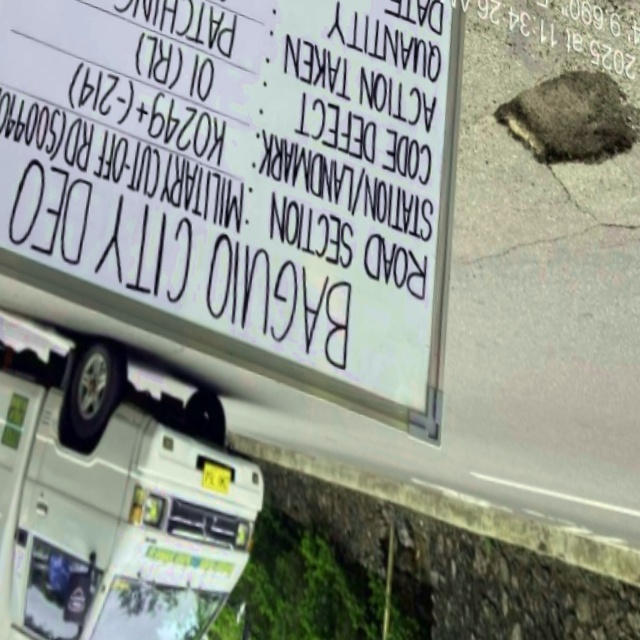 BAGUIO CITY DEO
ROAD SECTION : MILITARY CUT-OFF RD (S00940
STATION/LANDMARK: K0249+(-214)
CODE DEFECT : 01 (RL)
ACTION TAKEN : PATCHING
QUANTITY :
DATE
2025 at 11:34:26 A